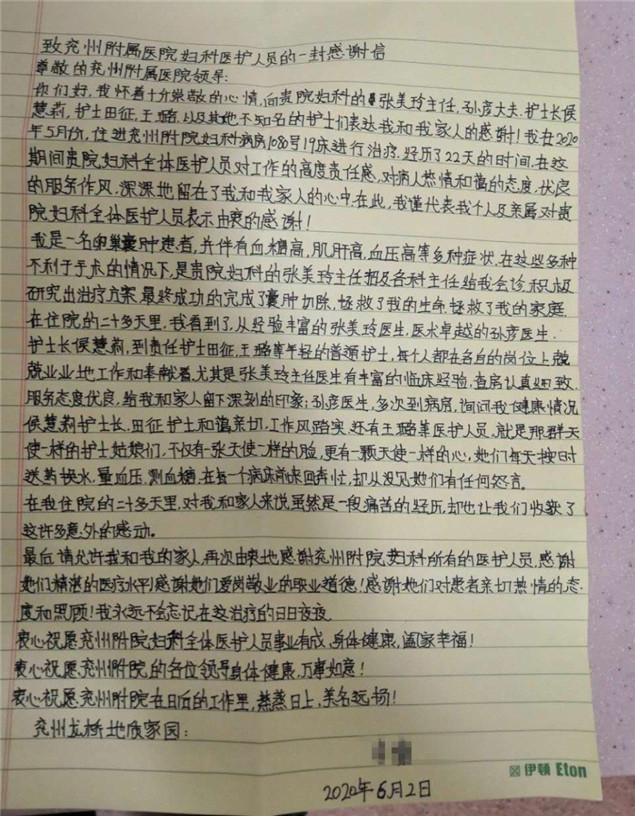 致兖州附属医院妇科医护人员的一封感谢信
尊敬的兖州附属医院领导:
你们好,我怀着十分崇敬的心情,向贵院妇科的张美玲主任,孙彦大夫.护士长侯
慧莉,护士田征,王璐,以及其他不知名的护士们表达我和我家人的感谢!我在2020
年5月份,住进兖州附属医院妇科病房108号19床进行治疗.经历了22天的时间.在这
期间贵院妇科全体医护人员对工作的高度责任感,对病人热情和蔼的态度.优良
的服务作风.深深地留在了我和我家人的心中.在此,我谨代表我个人及亲属对贵
院妇科全体医护人员表示由衷的感谢!
我是一名卵巢囊肿患者,并伴有血糖高,肌肝高,血压高等多种症状.在这些多种
不利于手术的情况下,是贵院妇科的张美玲主任招及各科主任给我会诊.积极
研究出治疗方案.最终成功的完成了囊肿切除,拯救了我的生命.拯救了我的家庭.
在住院的二十多天里.我看到了,从经验丰富的张美玲医生,医术卓越的孙彦医生.
护士长侯慧莉,到责任护士田征,王璐等年轻的普通护士,每个人都在各自的岗位上兢
兢业业地工作和奉献着.尤其是张美玲主任医生有丰富的临床经验,查房认真细致.
服务态度优良,给我和家人留下深刻的印象;孙彦医生,多次到病房,询问我健康情况
侯慧莉护士长,田征护士和蔼亲切,工作风踏实.还有王璐等医护人员,就是那群天
使一样的护士姑娘们,不仅有一张天使一样的脸,更有一颗天使一样的心,她们每天按时
送药换水,量血压,测血糖,在每一个病床前来回奔忙,却从没见她们有任何怨言.
在我住院的二十多天里,对我和家人来说虽然是一段痛苦的经历,却也让我们收获了
这许多意外的感动。
最后请允许我和我的家人.再次由衷地感谢兖州附院妇科所有的医护人员.感谢
她们精湛的医疗水平!感谢她们爱岗敬业的职业道德!感谢她们对患者亲切热情的态
度和照顾!我永远不会忘记在这治疗的日日夜夜.
衷心祝愿兖州附院妇科全体医护人员事业有成,身体健康,阖家幸福!
衷心祝愿兖州附院的各位领导身体健康,万事如意!
衷心祝愿兖州附院在日后的工作里,蒸蒸日上,美名远扬!
兖州龙桥地质家园:
伊顿 Eton
2020年6月2日